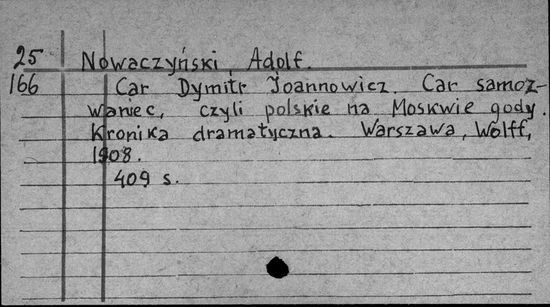 25 Nowaczyński, Adolf.
166 Car Dymitr Joannowicz. Car samoz-
waniec, czyli polskie na Moskwie gody.
Kronika dramatyczna. Warszawa, Wolff,
1908.
409 s.